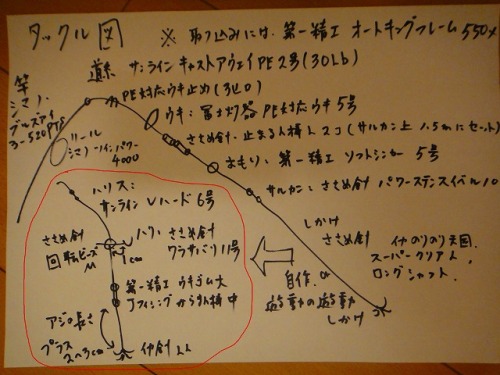 タックル図
※ 取り込みには、第一精工 オートキングフレーム 550
道糸 サンラインキャストアウェイPE2号(30Lb)
竿
シマノ
3-520PTS
PE対応ウキ止め(3コ)
ウキ:冨士灯器 PE対応ウキ5号
リール
シマノ ツインパワー
4000
ささめ針、止まるん棒人2コ(サルカン上1.5mにセット)
おもり:第一精工 ソフトシンカー 5号
サルカン:ささめ針 パワーステンスイベル10
ハリス:
サンライン Vハード6号
ささめ針
回転ビーズ
M
ハリ:ささめ針
ワラサブリ11号
1cm
第一精工 ウキゴム大
Jフィッシング からまん棒中
アジの長さ
プラス
2〜3cm
伊勢針LL
しかけ
ささめ針
イカのりのり天国、
スーパークリアL
ロングシャフト
自作の
遊動の遊動
しかけ